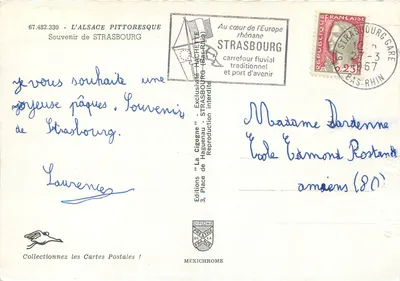 67.482.330 - L'ALSACE PITTORESQUE
Souvenir de STRASBOURG
Au cœur de l'Europe
rhénane
STRASBOURG
carrefour fluvial
traditionnel
et port d'avenir
RÉPUBLIQUE FRANÇAISE
0,25
67 STRASBOURG GARE
3
1967
BAS-RHIN
Je vous souhaite une
joyeuse pâques. Souvenir
de Strasbourg.
Laurence
Editions "La Cigogne" - Exclusivité HACHETTE
3, Place de Haguenau - STRASBOURG (Bas-Rhin)
Reproduction interdite
Madame Dardenne
Ecole Edmond Rostand
amiens (80)
Collectionnez les Cartes Postales !
MEXICHROME